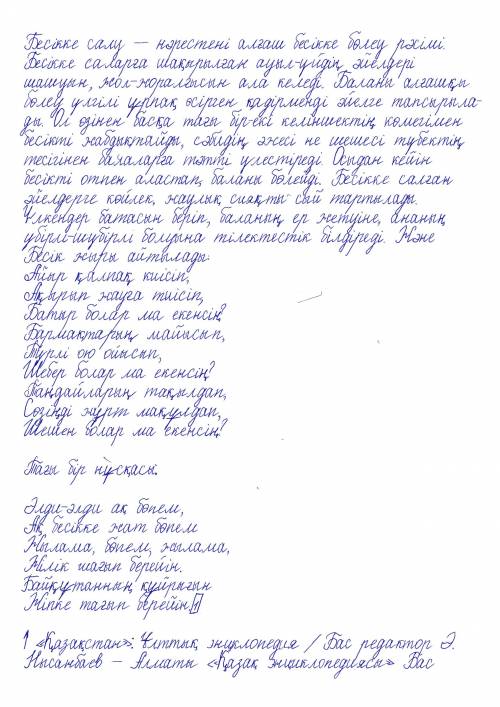 Бесікке салу — нәрестені алғаш бесікке бөлеу рәсімі.
Бесікке саларға шақырылған ауыл-үйдің әйелдері
шашуын, жол-жоралғысын ала келеді. Баланы алғашқы
бөлеу үлгілі ұрпақ өсірген қадірменді әйелге тапсырыла-
ды. Ол өзінен басқа тағы бір-екі келіншектің көмегімен
бесікті жабдықтайды, сәбидің әжесі не шешесі түбектің
тесігінен балаларға тәтті үлестіреді. Осыдан кейін
бесікті отпен аластап, баланы бөлейді. Бесікке салған
әйелдерге көйлек, жаулық сияқты сый тартылады.
Үлкендер батасын беріп, баланың ер жетуіне, ананың
үбірлі-шүбірлі болуына тілектестік білдіреді. Және
Бесік жыры айтылады:
Айыр қалпақ киісіп,
Ақырып жауға тиісіп,
Батыр болар ма екенсің?
Бармақтарың майысып,
Түрлі ою ойысып,
Шебер болар ма екенсің?
Таңдайларың тақылдап,
Сөзіңді жұрт мақұлдап,
Шешен болар ма екенсің?
Тағы бір нұсқасы:
Әлди-әлди ақ бөпем,
Ақ бесікке жат бөпем
Жылама, бөпем, жылама,
Жілік шағып берейін.
Байқұтанның құйрығын
Жіпке тағып берейін[]
1 «Қазақстан»: Ұлттық энциклопедия / Бас редактор Ә.
Нысанбаев – Алматы «Қазақ энциклопедиясы» Бас